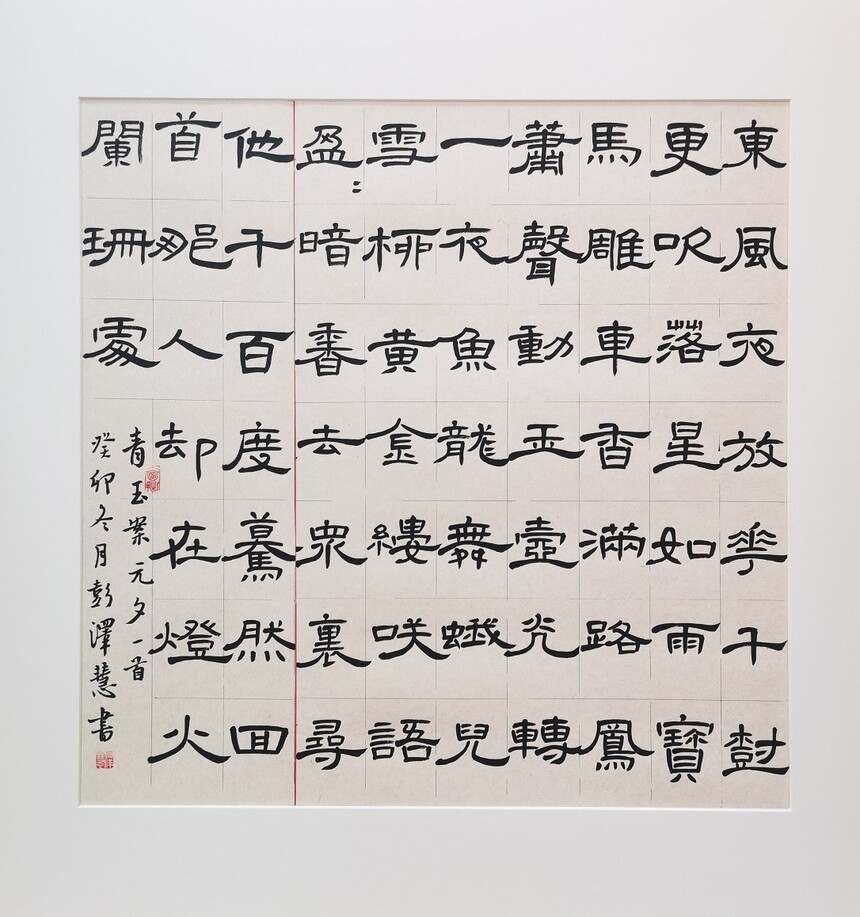 東風夜放花千樹
更吹落星如雨寶
馬雕車香滿路鳳
蕭聲動玉壺光轉
一夜魚龍舞蛾兒
雪柳黃金縷咲語
盈〻暗香去衆裏尋
他千百度驀然回
首那人却在燈火
闌珊處
青玉案元夕一首
癸卯冬月彭澤慧書